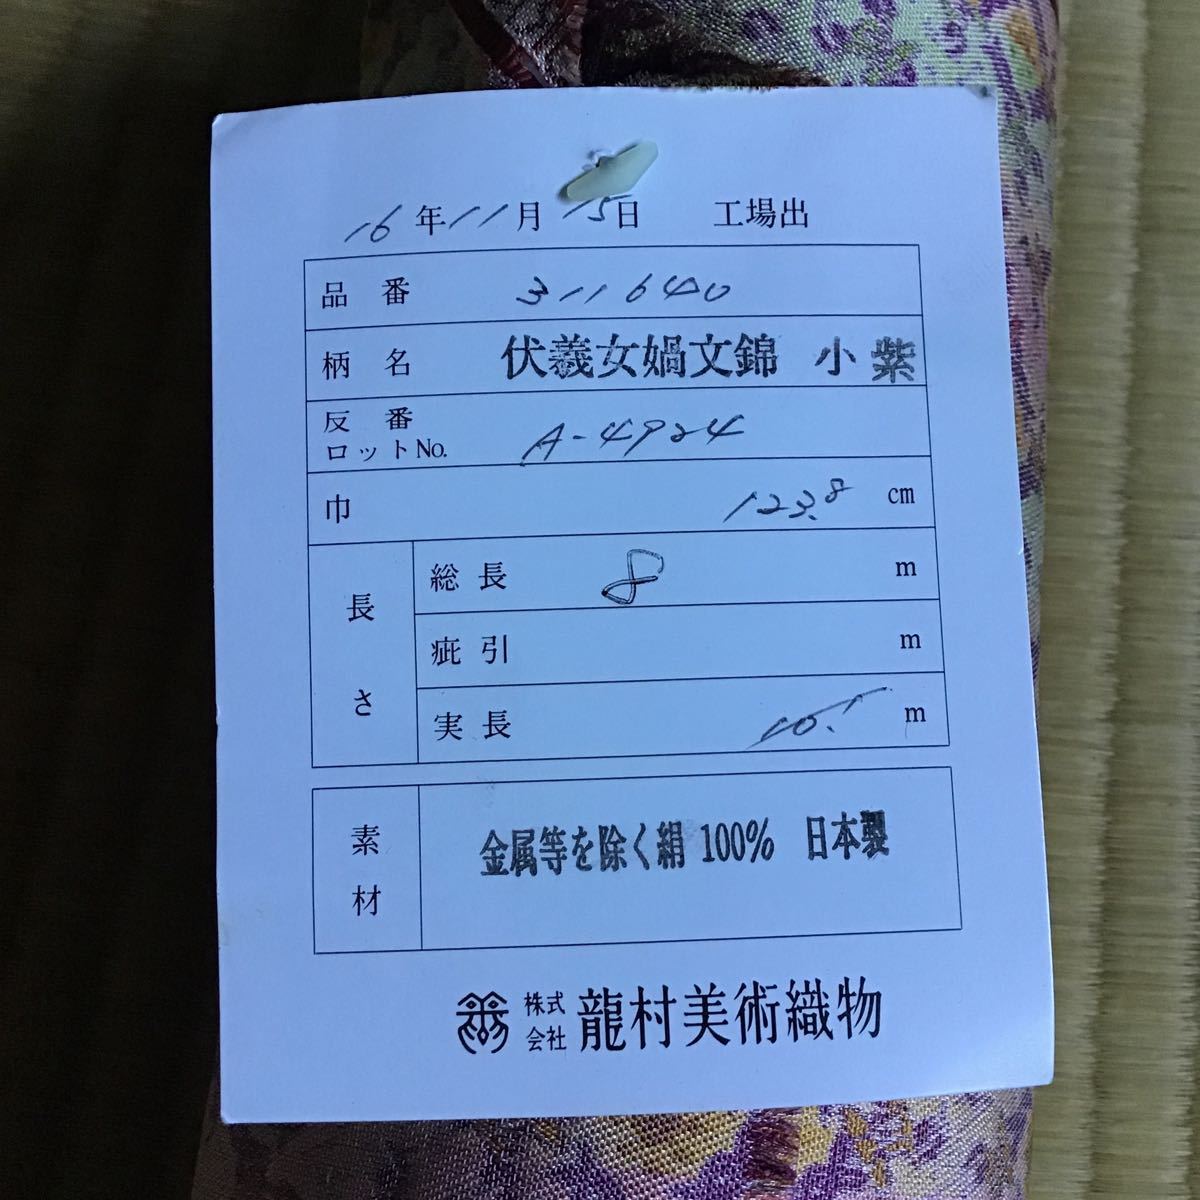 16年11月15日 工場出
品番 311640
柄名 伏羲女媧文錦 小 紫
反番
ロットNo. A-4924
巾 123.8 cm
長さ
総長 8 m
疵引 m
実長 10.1 m
素材 金属等を除く絹 100% 日本製
株式会社 龍村美術織物